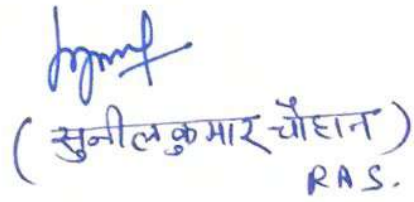 ( सुनील कुमार चौहान )
RAS.